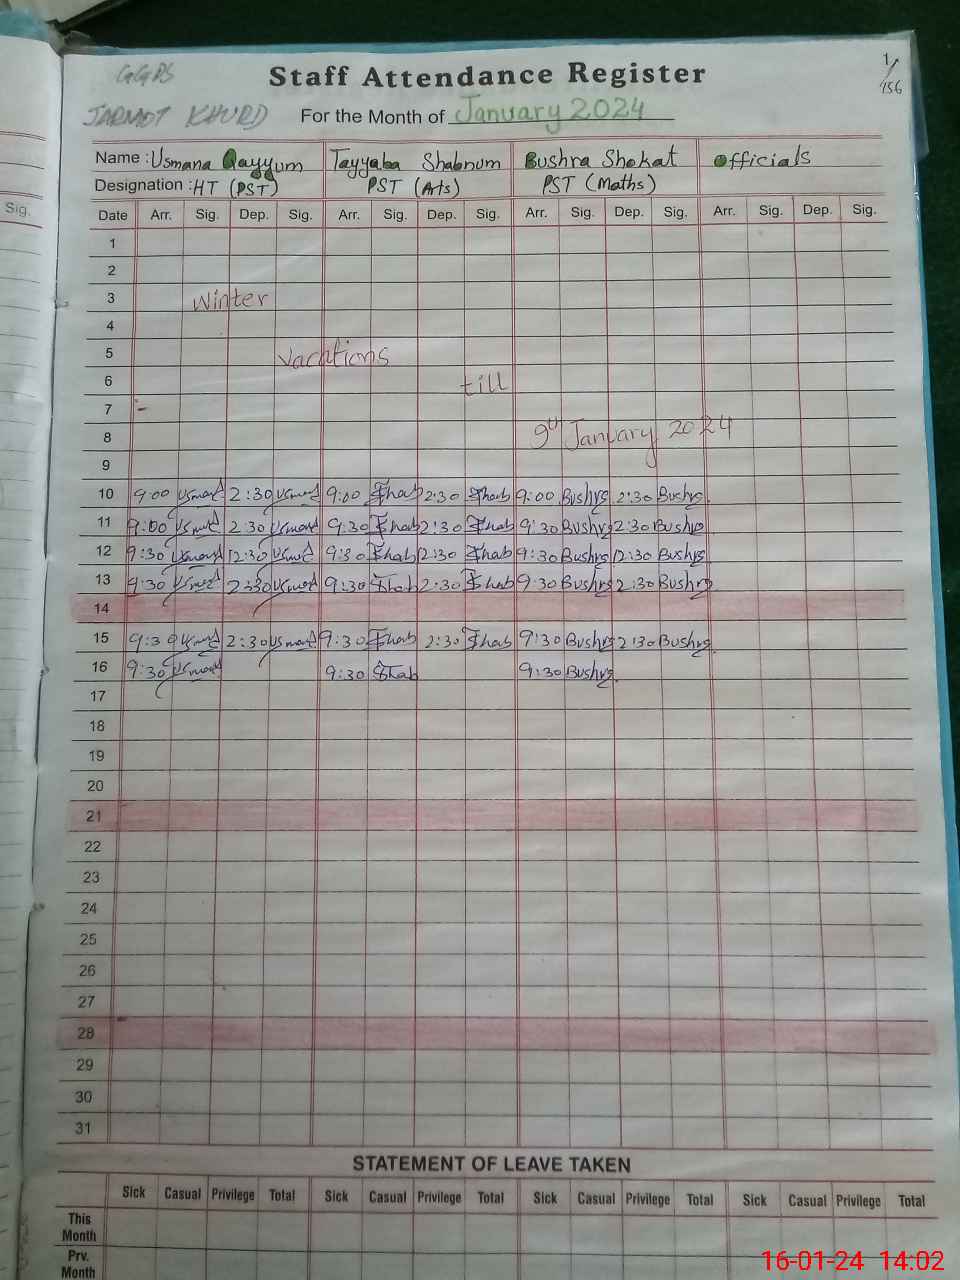 GGPS
Staff Attendance Register
1/156
JARMOT KHURD
For the Month of January 2024
Name : Usmana Qayyum Tayyaba Shabnum Bushra Shokat Officials
Designation : HT (PST) PST (Arts) PST (Maths)
Sig. Date Arr. Sig. Dep. Sig. Arr. Sig. Dep. Sig. Arr. Sig. Dep. Sig. Arr. Sig. Dep. Sig.
1
2
3 Winter
4
5 vacations
6 till
7
8 9th January 2024
9
10 9:00 Usmana 2:30 Usmana 9:00 Shab 2:30 Shab 9:00 Bushra 2:30 Bushra
11 9:00 Usmana 2:30 Usmana 9:30 Shab 2:30 Shab 9:30 Bushra 2:30 Bushra
12 9:30 Usmana 12:30 Usmana 9:30 Shab 12:30 Shab 9:30 Bushra 12:30 Bushra
13 9:30 Usmana 2:30 Usmana 9:30 Shab 2:30 Shab 9:30 Bushra 2:30 Bushra
14
15 9:30 Usmana 2:30 Usmana 9:30 Shab 2:30 Shab 9:30 Bushra 2:30 Bushra
16 9:30 Usmana 9:30 Shab 9:30 Bushra
17
18
19
20
21
22
23
24
25
26
27
28
29
30
31
STATEMENT OF LEAVE TAKEN
Sick Casual Privilege Total Sick Casual Privilege Total Sick Casual Privilege Total Sick Casual Privilege Total
This
Month
Prv.
Month
16-01-24 14:02